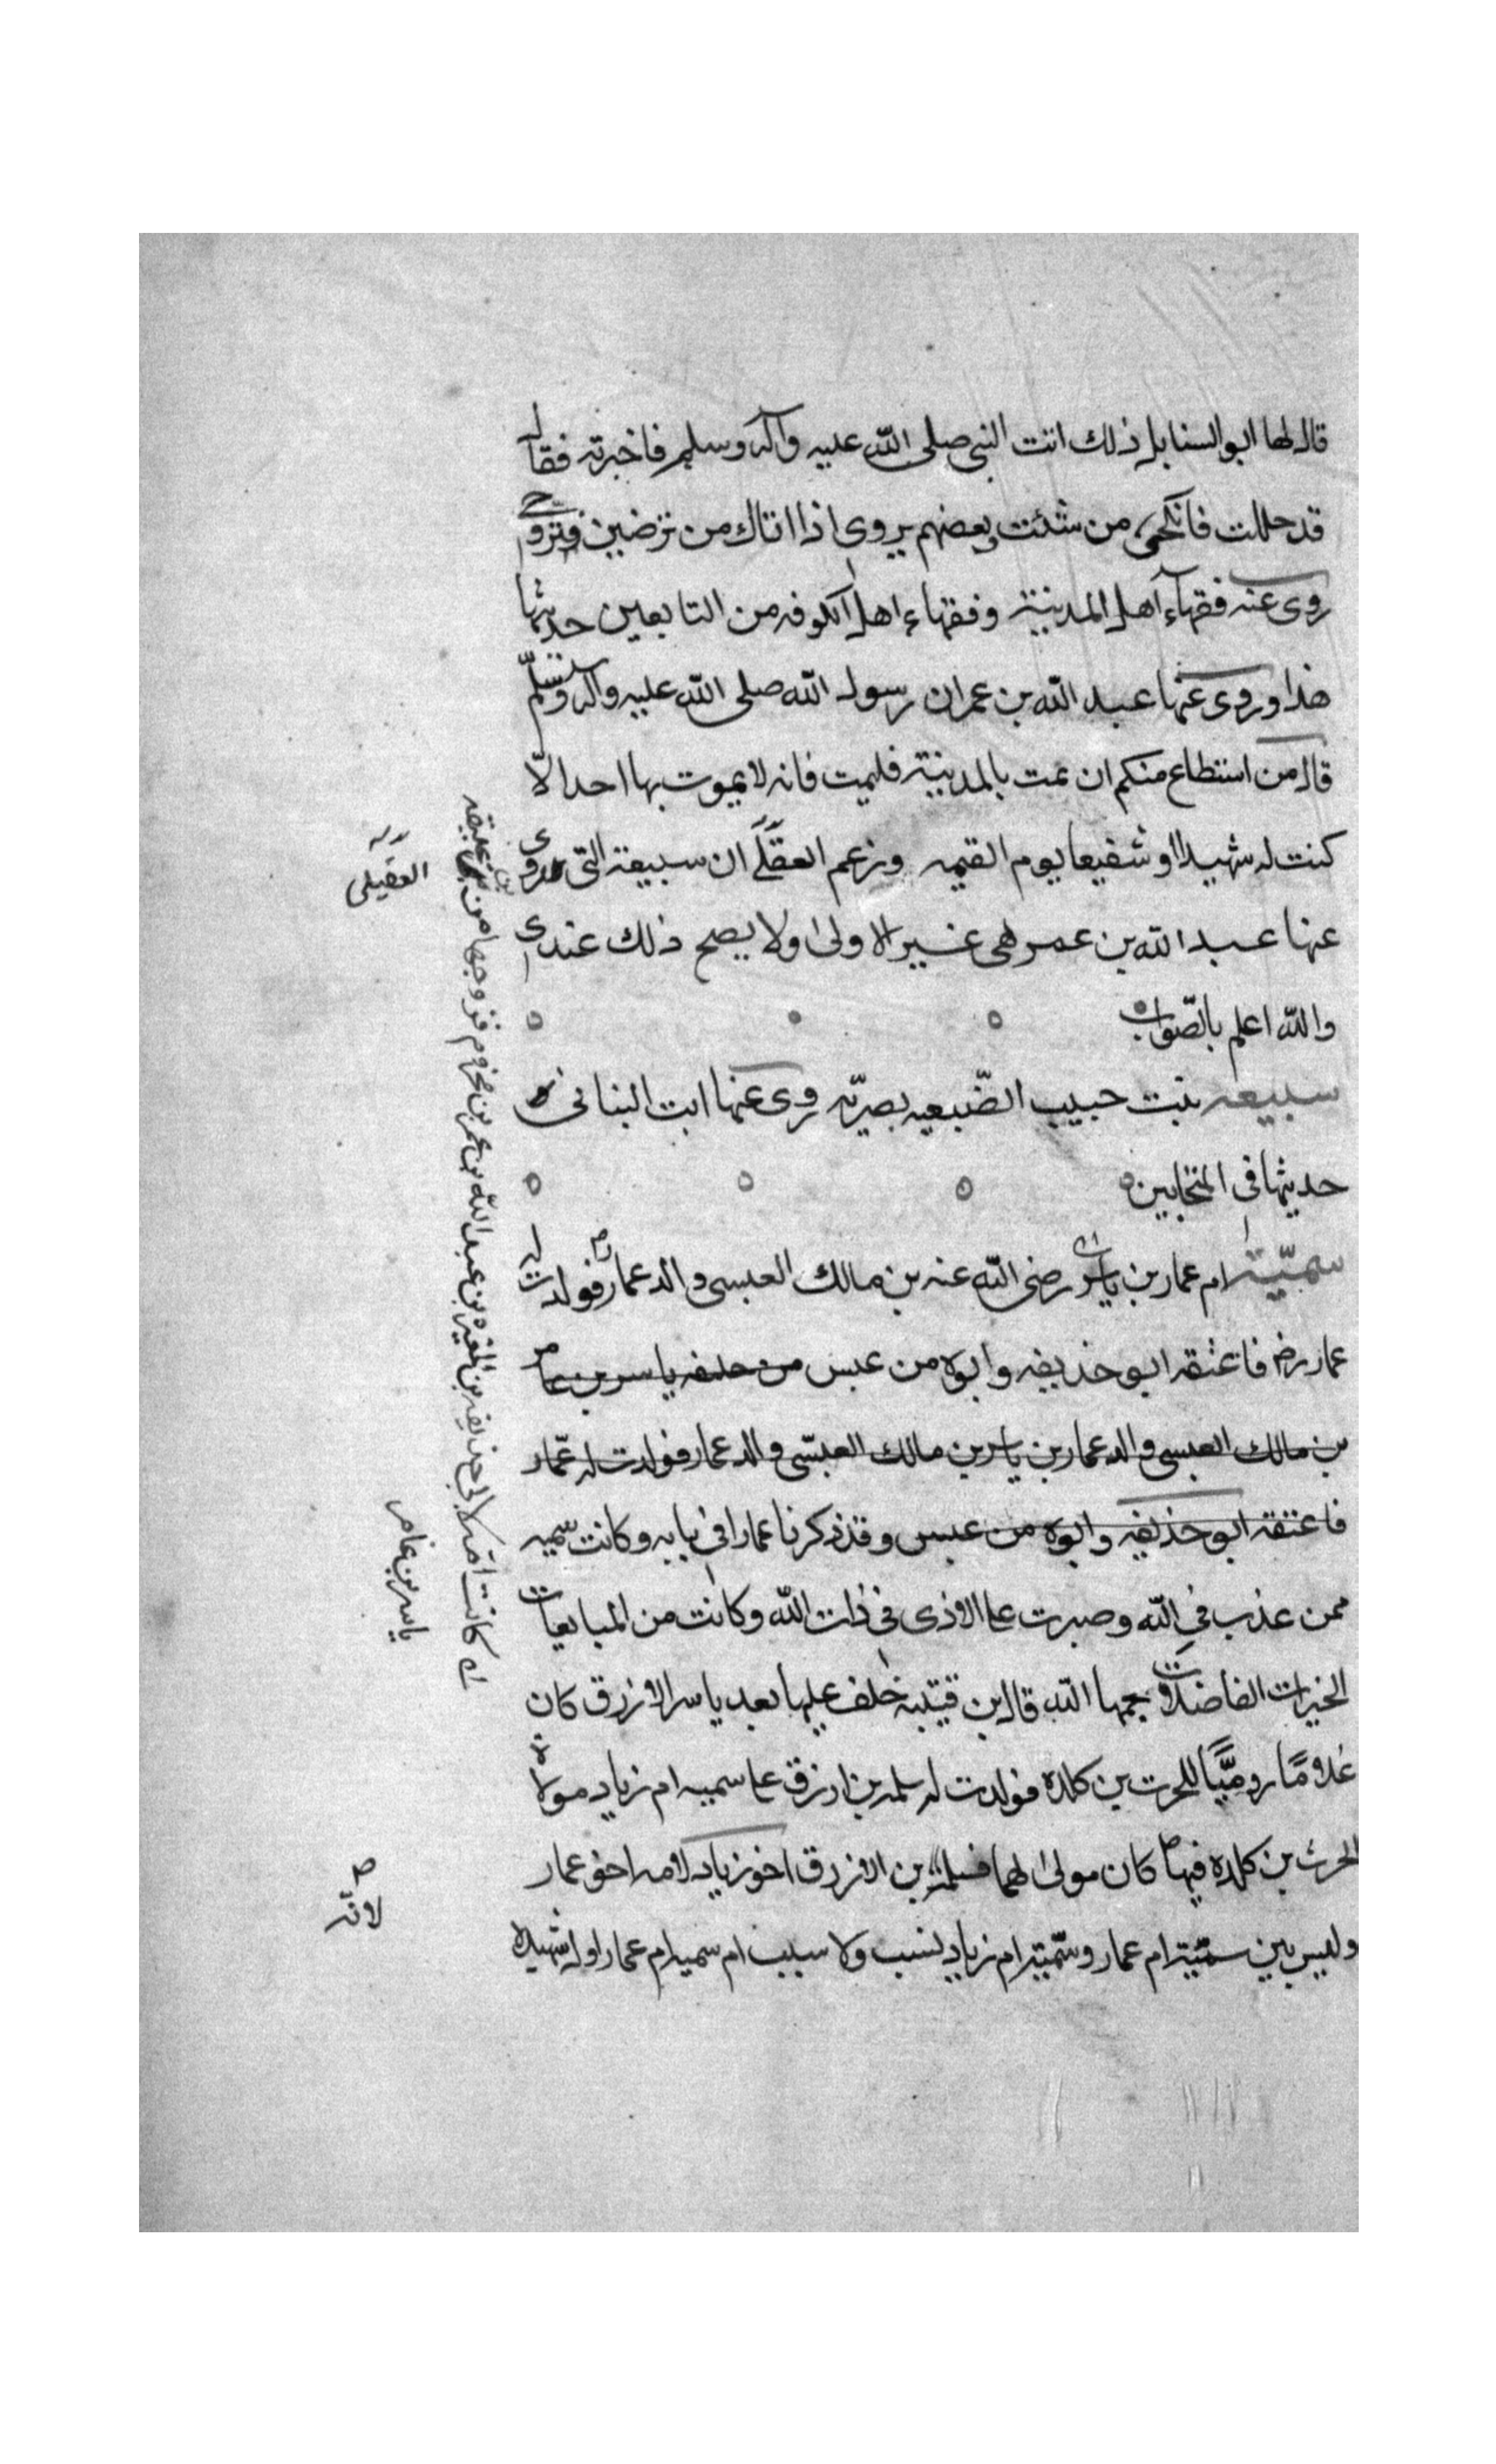 قال لها ابو السنابل ذلك اتت النبى صلى الله عليه وآله وسلم فاخبرته فقال
قد حللت فانكحى من شئت وبعضهم يروى اذا اتاك من ترضين فتزوجى
روى عنه فقهاء اهل المدينة وفقهاء اهل الكوفه من التابعين حديثها
هذا وروى عنها عبد الله بن عمر ان رسول الله صلى الله عليه وآله وسلم
قال من استطاع منكم ان يمت بالمدينة فليمت فانه لا يموت بها احد الّا
كنت له شهيدا او شفيعا يوم القيمه وزعم العقلى ان سبيعة التى روى
عنها عبد الله بن عمر هى غير الاولى ولا يصح ذلك عندى
والله اعلم بالصّواب
سبيعه بنت حبيب الضّبيعيه بصريّه روى عنها ابت البنانى
حديثها فى المتحابين
سميّة ام عمار بن ياسر رضى الله عنه بن مالك العبسى والد عمار فولدت له
عمار رضه فاعتقه ابو حذيفه وابوه من عبس من حليفه ياسر بن عامر
بن مالك العبسى والد عمار بن ياسر بن مالك العبسّى والد عمار فولدت له عمّار
فاعتقه ابو حذيفه وابوه من عبس وقد ذكرنا عمارا فى بابه وكانت سميه
ممن عذب فى الله وصبرت على الاذى فى ذات الله وكانت من المبايعات
الخيرات الفاضلات رحمها الله قال ابن قتيبة خلف عليها بعد ياسر الازرق كان
غلامًا روميًّا للحرث بن كلده فولدت له سلمه بن ازرق على سميه ام زياد مولاة
الحرث بن كلده فيها كان مولى لهما فسلمة بن الازرق اخو زياد لامه اخو عمار
وليس بين سميّة ام عمار وسميّة ام زياد نسب ولا سبب ام سميه ام عمار اول شهيده
العقيلى
كانت امة لابى حذيفه بن المغيره بن عبد الله بن عمر بن مخزوم فزوجها من حليفه
ياسر بن عامر
لانّه